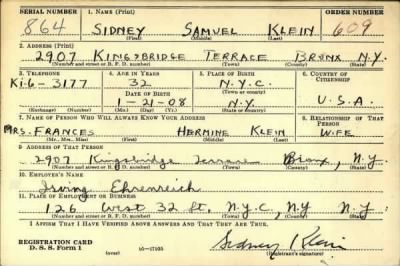 SERIAL NUMBER 1. NAME (Print) ORDER NUMBER
864 SIDNEY SAMUEL KLEIN 609
(First) (Middle) (Last)
2. ADDRESS (Print)
2907 KINGSBRIDGE TERRACE BRONX N.Y.
(Number and street or R. F. D. number) (Town) (County) (State)
3. TELEPHONE 4. AGE IN YEARS 5. PLACE OF BIRTH 6. COUNTRY OF CITIZENSHIP
Ki.6-3177 32 N.Y.C.
(Town or county)
DATE OF BIRTH
1-21-08 N.Y. U.S.A.
(Exchange) (Number) (Mo.) (Day) (Yr.) (State or country)
7. NAME OF PERSON WHO WILL ALWAYS KNOW YOUR ADDRESS 8. RELATIONSHIP OF THAT PERSON
MRS. FRANCES HERMINE KLEIN WIFE
(Mr., Mrs., Miss) (First) (Middle) (Last)
9. ADDRESS OF THAT PERSON
2907 Kingsbridge Terrace Bronx, N.Y
(Number and street or R. F. D. number) (Town) (County) (State)
10. EMPLOYER'S NAME
Irving Ehrenreich
11. PLACE OF EMPLOYMENT OR BUSINESS
126 West 32 St. N.Y.C, NY N.Y.
(Number and street or R. F. D. number) (Town) (County) (State)
I AFFIRM THAT I HAVE VERIFIED ABOVE ANSWERS AND THAT THEY ARE TRUE.
REGISTRATION CARD
D. S. S. Form 1 16-17105 Sidney Klein
(Registrant's signature)